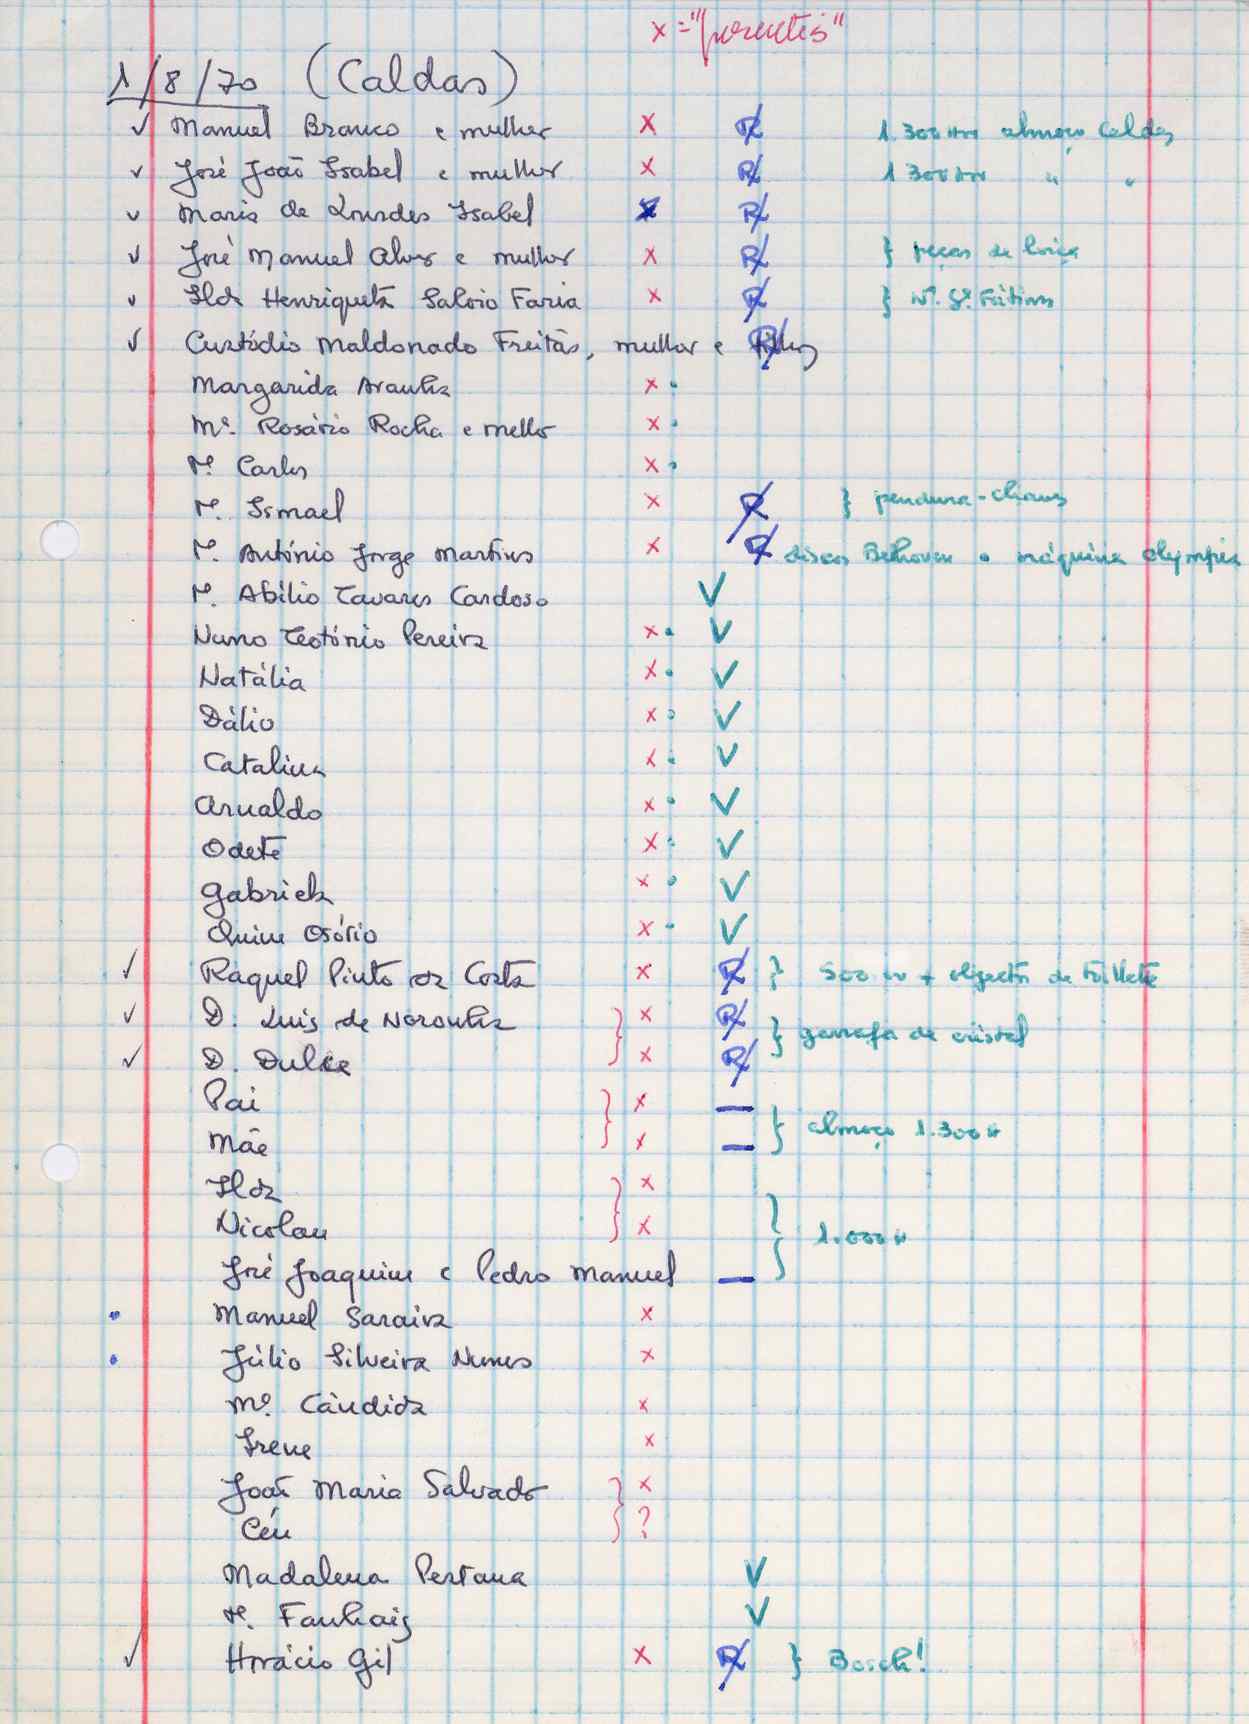 x = "presentes"
1/8/70 (Caldas)
✓ Manuel Branco e mulher x R/ 1.300$00 almoço Caldas
✓ José João Isabel e mulher x R/ 1300$00 " "
✓ Maria de Lourdes Isabel x R/
✓ José Manuel Alves e mulher x R/ } peças de loiça
✓ Ilda Henriqueta Salvio Faria x R/ } Nª. Sª. Fátima
✓ Custódio Maldonado Freitas, mulher e filhos R/
Margarida Aranha x •
Mª. Rosário Rocha e melhor x •
P. Carlos x •
P. Ismael x R/ } pendura-chaves
P. António Jorge Martins x R/ discos Bethoven • máquina Olympia
P. Abílio Tavares Cardoso V
Nuno Teotónio Pereira x • V
Natália x • V
Dálio x • V
Catalina x • V
Arnaldo x • V
Odete x • V
Gabriela x • V
Quim Osório x • V
✓ Raquel Pinto da Costa x R/ } 500$00 + objectos de toillete
✓ D. Luis de Noronha } x R/ } garrafa de cristal
✓ D. Dulce x R/
Pai } x — } almoço 1.300$
Mãe x —
Ilda } x
Nicolau x } 1.000$
José Joaquim e Pedro Manuel —
• Manuel Saraiva x
• Júlio Silveira Nunes x
Mª. Cândida x
Irene x
João Maria Salvado } x
Céu ?
Madalena Pestana V
P. Fanhais V
✓ Horácio Gil x R/ } Bosch!